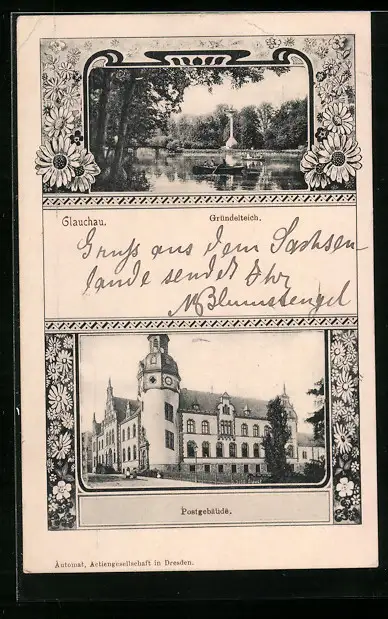 Glauchau.
Gründelteich.
Gruß aus dem Sachsen-
lande sendet Ihr
Blumstengel
Postgebäude.
Automat, Actiengesellschaft in Dresden.